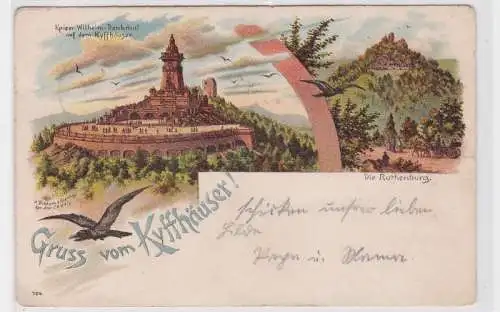 Kaiser Wilhelm-Denkmal
auf dem Kyffhäuser
Die Rothenburg.
Gruss vom Kyffhäuser!
schicken unsrer lieben
Hilde
Papa u. Mama